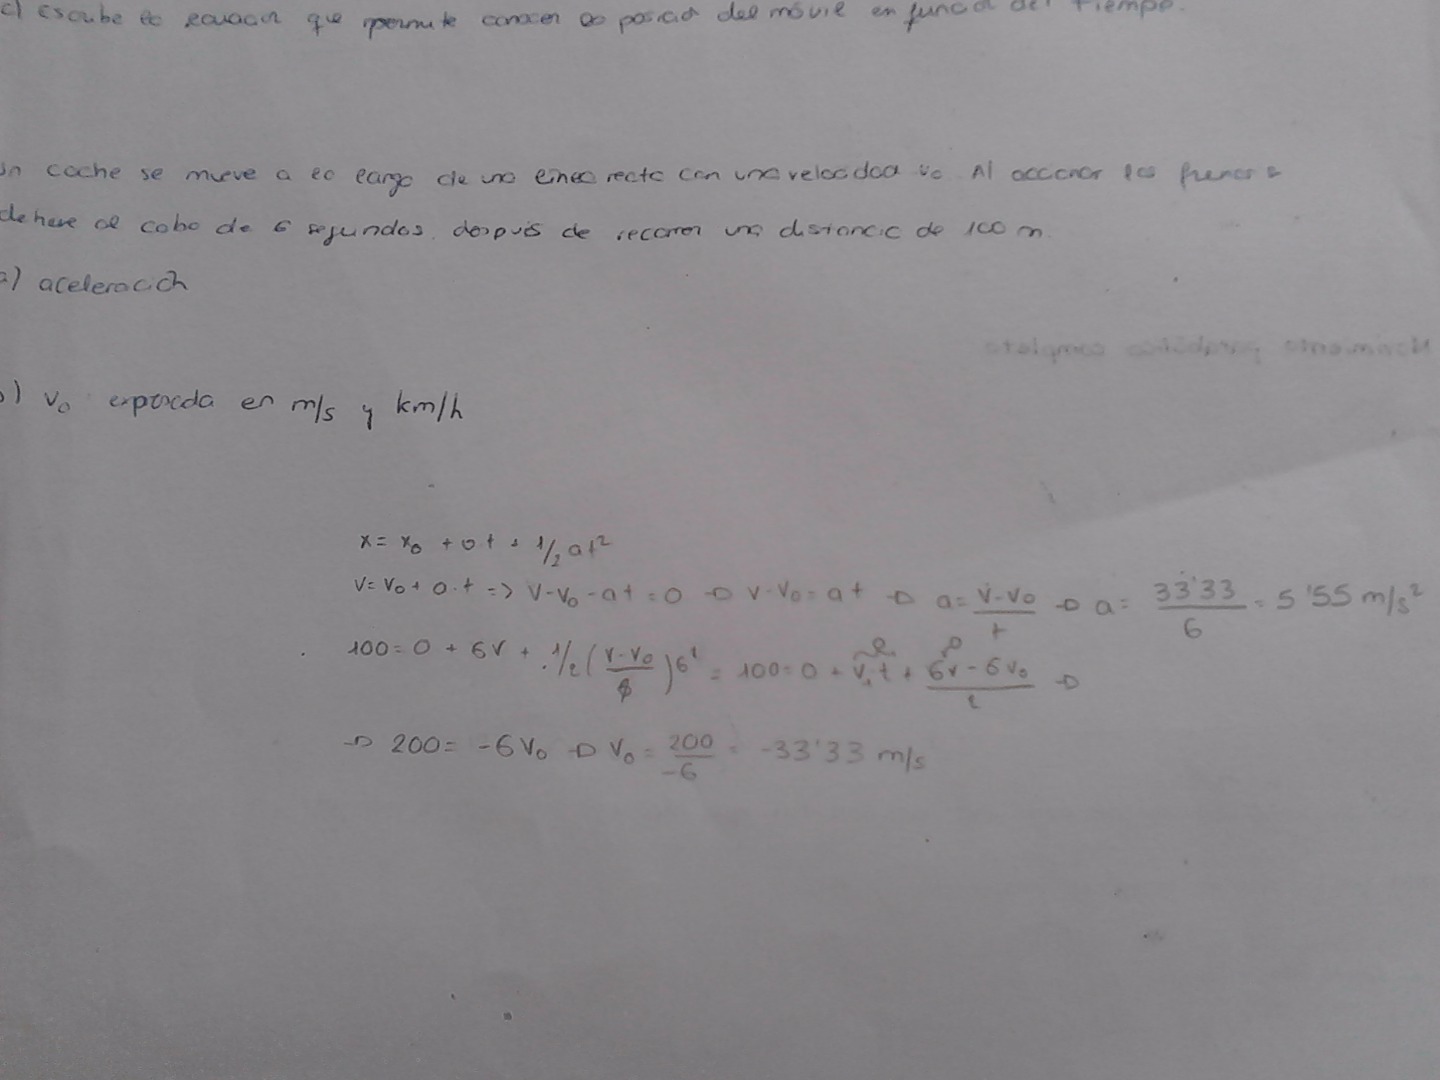 c) Escribe la ecuación que permite conocer la posición del móvil en función del tiempo.
Un coche se mueve a lo largo de una línea recta con una velocidad v₀. Al accionar los frenos se
detiene al cabo de 6 segundos, después de recorrer una distancia de 100 m.
a) aceleración
Movimiento parabólico completo
b) v₀ expresada en m/s y km/h
x = x₀ + 0 t + 1/2 at²
v = v₀ + a·t => v-v₀-at = 0 → v-v₀ = at → a = (v-v₀)/t → a = 33'33/6 = 5'55 m/s²
100 = 0 + 6v + 1/2 ((v-v₀)/6) 6² = 100 = 0 + v₁t + (6v - 6v₀)/2 →
→ 200 = -6v₀ → v₀ = 200/-6 = -33'33 m/s